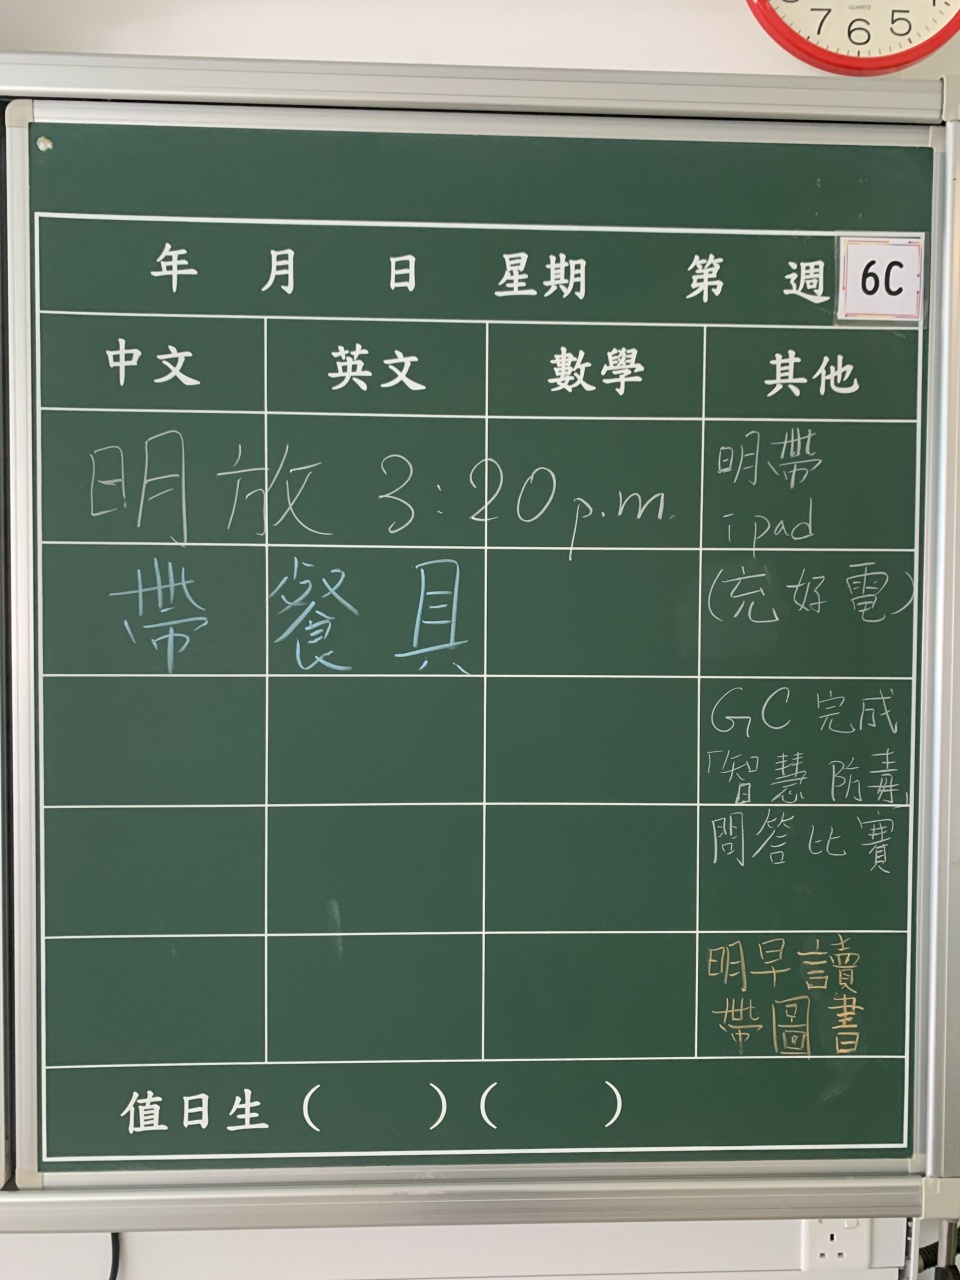 7 6 5
QUARTZ
年 月 日 星期 第 週 6C
中文 英文 數學 其他
明放 3:20 p.m.
帶餐具
明帶
ipad
(充好電)
GC 完成
「智慧防毒」
問答比賽
明早讀
帶圖書
值日生 ( ) ( )